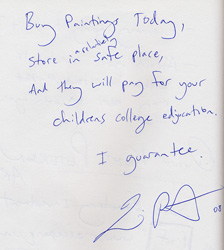 Buy Paintings Today,
absolutely
store in safe place,
And they will pay for your
childrens college edjucation.
I guarantee.
08